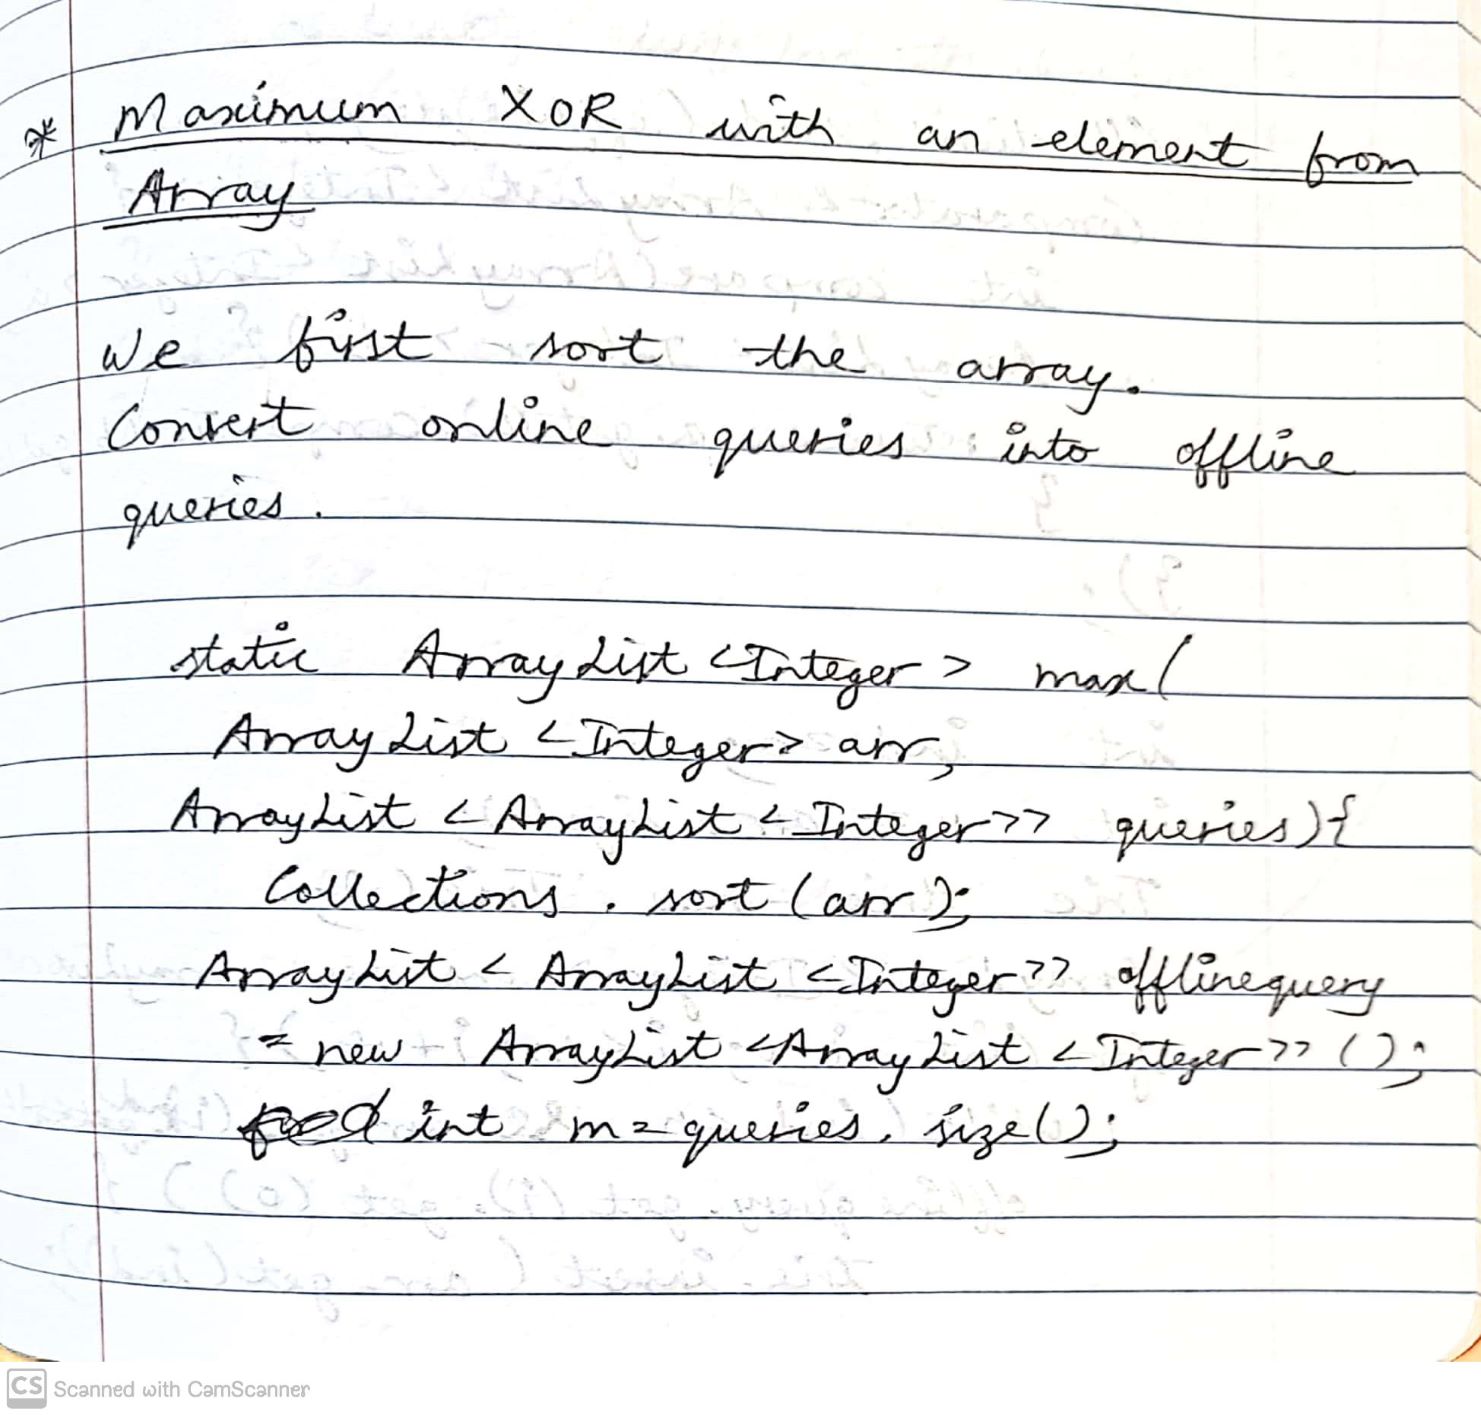 * Maximum XOR with an element from
Array
We first sort the array.
Convert online queries into offline
queries.
static ArrayList <Integer> max(
ArrayList <Integer> arr,
ArrayList < ArrayList < Integer>> queries){
Collections . sort (arr);
ArrayList < ArrayList <Integer>> offlinequery
= new ArrayList <ArrayList < Integer>> ();
int m = queries. size();
CS Scanned with CamScanner